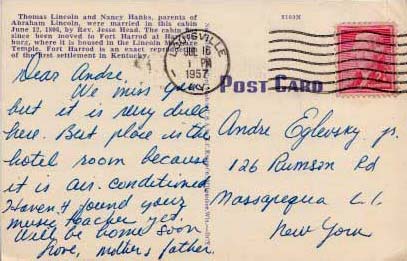 Thomas Lincoln and Nancy Hanks, parents of
Abraham Lincoln, were married in this cabin
June 12, 1806, by Rev. Jesse Head. The cabin
since been moved to Fort Harrod at
burg, where it is housed in the Lincoln
Temple. Fort Harrod is an exact
of the first settlement in Kentucky.
LOUISVILLE
16
1 PM
1957
KY.
POST CARD
Dear Andre,
We miss you
but it is very dull
here. Best place is the
hotel room because
it is air-conditioned
Haven't found your
music teacher yet.
Will be home soon
Love, mother & father.
Andre Eglevsky jr.
126 Rumson Rd
Massapequa L.I.
New York